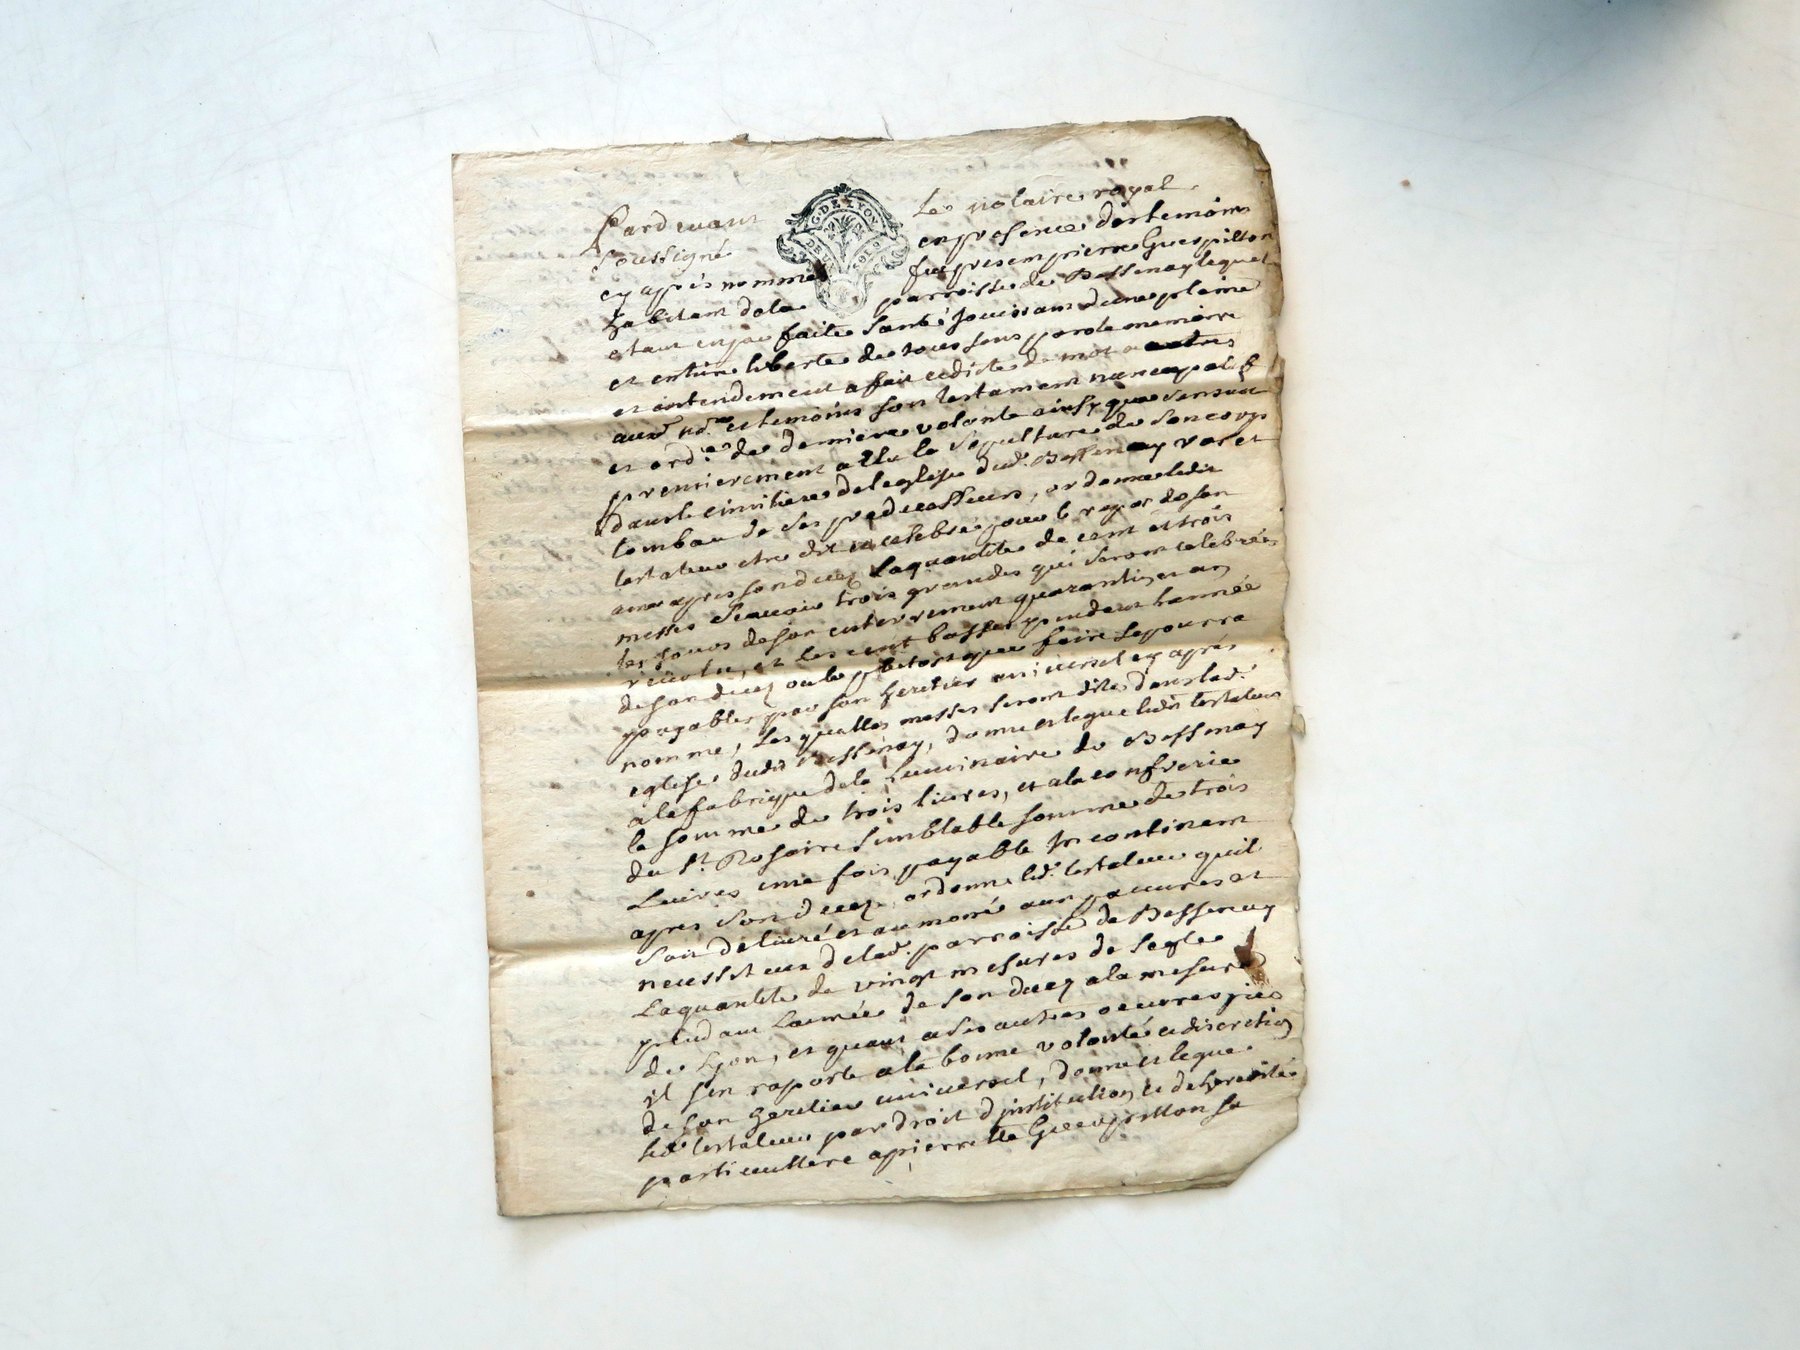 G. DE LYON
DEUX SOLS
Pardevant Le notaire royal
soussigné en presence des temoins
cy apres nommes fut present pierre Guerpillon
habitant de la parroisse de Bessenay lequel
etant en par faite santé jouissant dune pleine
et entiere liberte de tous sens parole memoire
et entendement a fait et dicte de mot a autres
auxd. nore. et temoins son testament nuncupatif
et ordre. de derniere volonte ainsy que sensuit
premierement a elu la sepulture de son corps
dans le cimitiere de leglise dud. Bessenay vas et
tombau de ses predecesseurs, ordonne ledit
testateur etre dit et celebré pour le repos de son
ame apres son decez la quantite de cent et trois
messes scavoir trois grandes qui seront celebrées
les jours de son enterrement quarantine et an
revolu, et les cent basses pendant lannée
de son decez ou le plutost que faire se pourra
payables par son heritier universel cy aprés
nomme, les quelles messes seront dites dans lad.
eglise dudit Bessenay, donne et legue ledit testateur
a la fabrique de la Luminaire de Bessenay
la somme de trois livres, et a la confrerie
du St. Rosaire semblable somme de trois
Livres une fois payable incontinent
apres son decez, ordonne led. testateur quil
soit delivré et aumoné aux pauvres et
necessiteux de lad. parroisse de Bessenay
La quantite de vingt mesures de segle
pendant Lannée de son decez a la mesure
de Lyon, et quant a ses autres oeuvres pies
il sen raporte a la bonne volonté et discretion
de son heritier universel, donne et legue
led. testateur par droit d'institution et de heredité
particulliere a pierrette Guerpillon sa